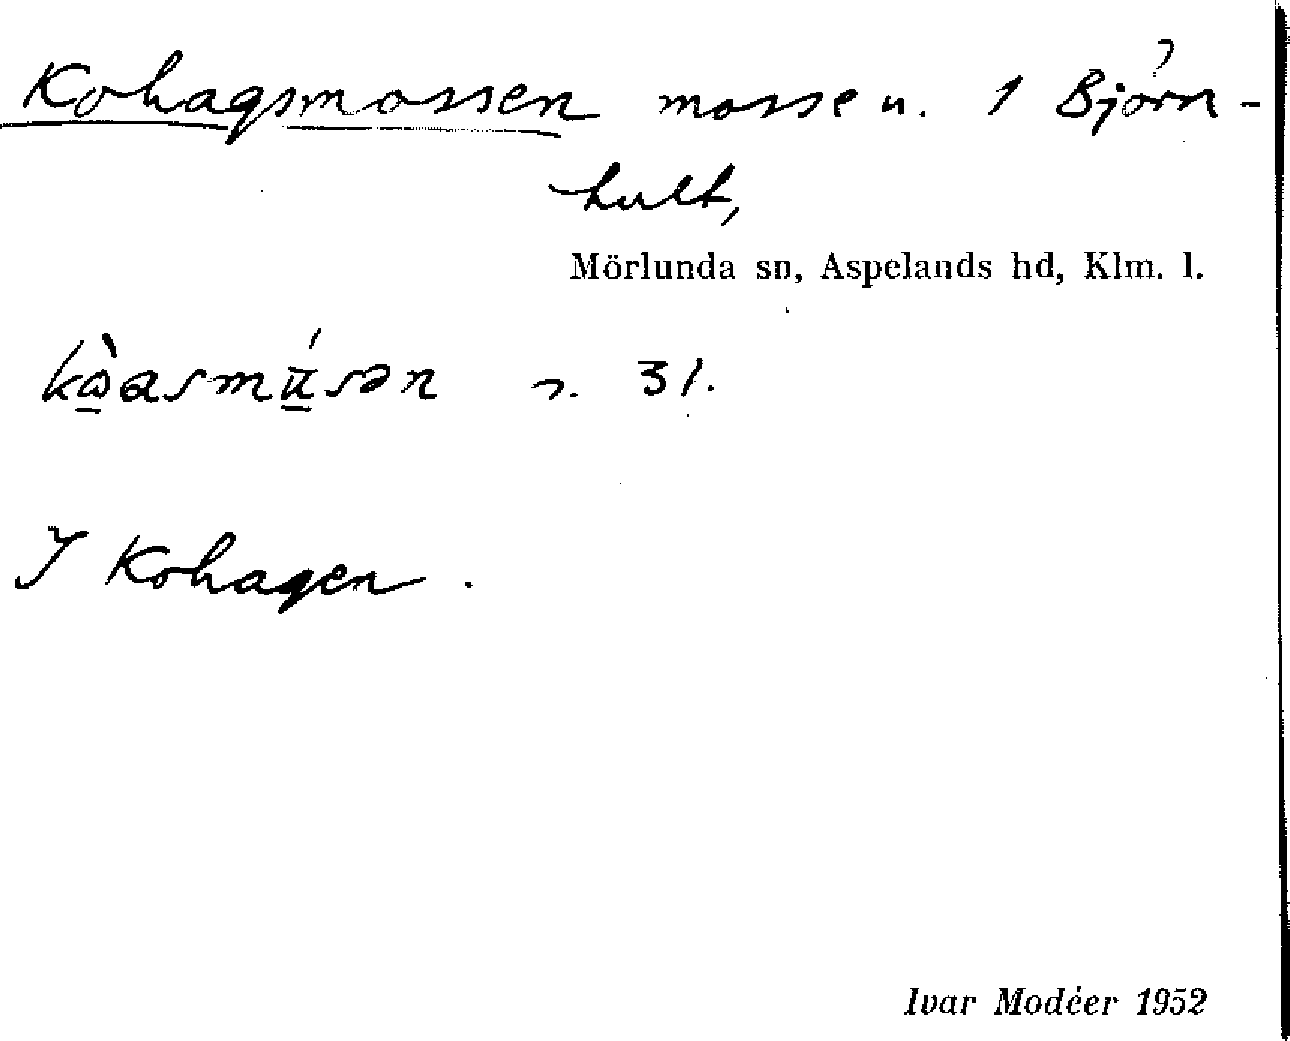 Kohagsmossen mosse u. 1 Björn-
hult,
Mörlunda sn, Aspelands hd, Klm. l.
31.
I Kohagen.
Ivar Modéer 1952